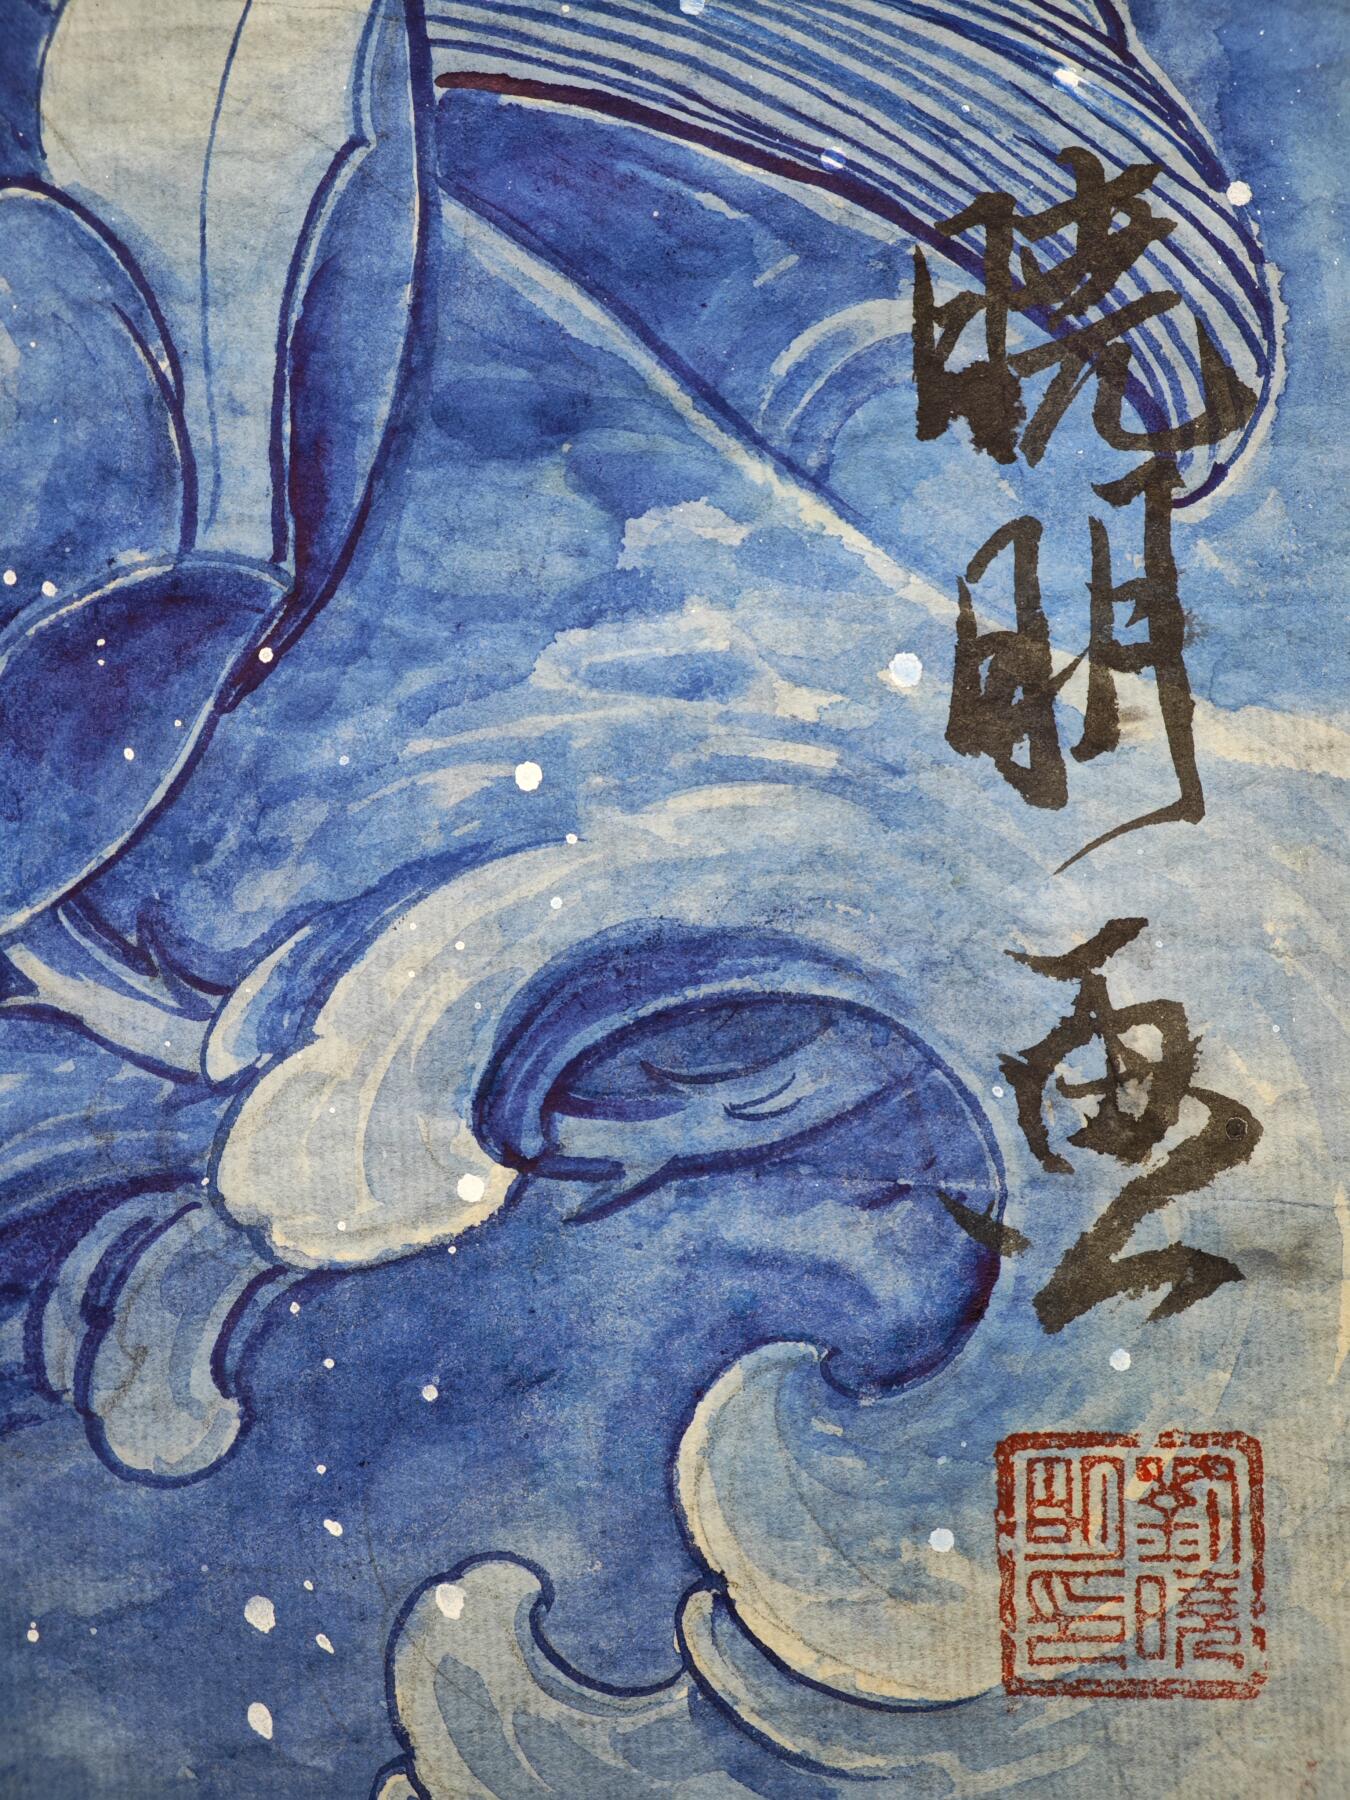 晓明画
劉曉
明印